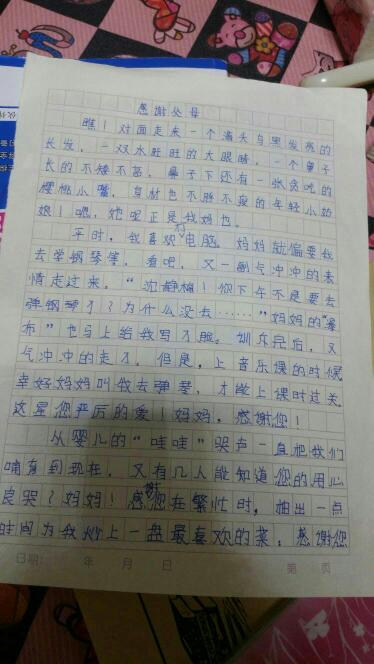 感谢父母
瞧！对面走来一个满头乌黑发亮的
长发，一双水旺旺的大眼睛，一个鼻子
长的不矮不高，鼻子下还有一张贪吃的
樱桃小嘴，身材也不胖不瘦的年轻小奶
娘！嗯，她呢正是我妈也。
平时，我喜欢打电脑，妈妈就偏要我
去学钢琴等，看吧，又一副气冲冲的表
情走过来，“沈静梅！你下午不是要去
弹钢琴了？为什么没去……”妈妈的“瀑
布”也马上给我写了服。训斥完后，又
气冲冲的走了。但是，上音乐课的时候
幸好妈妈叫我去弹琴，才能上课时过关
这是您严厉的爱！妈妈，感谢您！
从婴儿的“哇哇”哭声一直把我们
哺育到现在，又有几人能知道您的用心
良哭？妈妈！感谢您在繁忙时，抽出一点
时间为我炒上一盘最喜欢的菜，感谢您
日期： 年 月 日 第 页